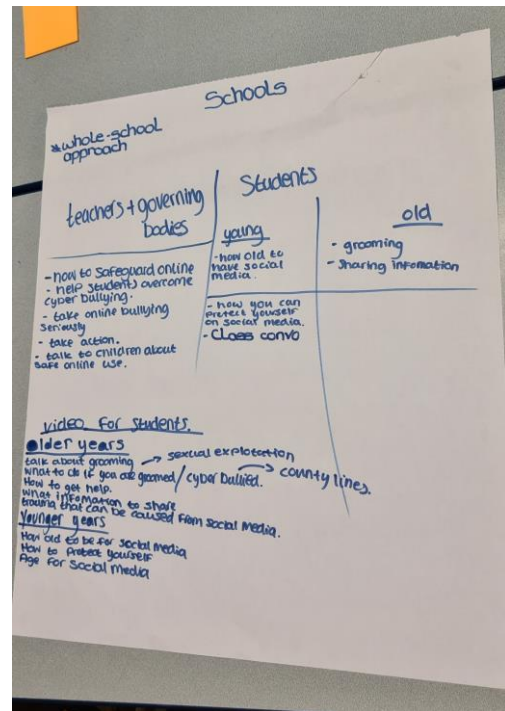 Schools
*whole-school
approach
teachers + governing
bodies
- how to safeguard online
- help students overcome
cyber bullying.
- take online bullying
seriously
- take action.
- talk to children about
safe online use.
Students
young
- how old to
have social
media.
- how you can
protect yourself
on social media.
- Class convo
old
- grooming
- sharing infomation
video for students.
older years
talk about grooming → sexual explotation
what to do if you are groomed / cyber bullied. → county lines.
How to get help.
what infomation to share
trauma that can be caused from social media.
Younger years
How old to be for social media
How to protect yourself
Age for social media